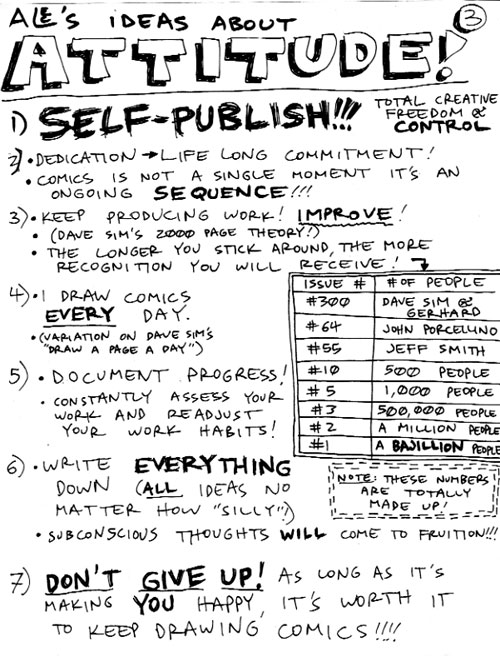 ALE'S IDEAS ABOUT
ATTITUDE!
3
1) SELF-PUBLISH!!!
TOTAL CREATIVE
FREEDOM &
CONTROL
2) • DEDICATION → LIFE LONG COMMITMENT!
• COMICS IS NOT A SINGLE MOMENT IT'S AN
ONGOING SEQUENCE!!!
3) • KEEP PRODUCING WORK! IMPROVE!
• (DAVE SIM'S 2000 PAGE THEORY!)
• THE LONGER YOU STICK AROUND, THE MORE
RECOGNITION YOU WILL RECEIVE!
ISSUE # # OF PEOPLE
#300 DAVE SIM &
GERHARD
#64 JOHN PORCELLINO
#55 JEFF SMITH
#10 500 PEOPLE
#5 1,000 PEOPLE
#3 500,000 PEOPLE
#2 A MILLION PEOPLE
#1 A BAJILLION PEOPLE
NOTE: THESE NUMBERS
ARE TOTALLY
MADE UP!
4) • I DRAW COMICS
EVERY DAY.
• (VARIATION ON DAVE SIM'S
"DRAW A PAGE A DAY")
5) • DOCUMENT PROGRESS!
• CONSTANTLY ASSESS YOUR
WORK AND READJUST
YOUR WORK HABITS!
6) • WRITE EVERYTHING
DOWN (ALL IDEAS NO
MATTER HOW "SILLY")
• SUBCONSCIOUS THOUGHTS WILL COME TO FRUITION!!!
7) DON'T GIVE UP! AS LONG AS IT'S
MAKING YOU HAPPY, IT'S WORTH IT
TO KEEP DRAWING COMICS!!!!